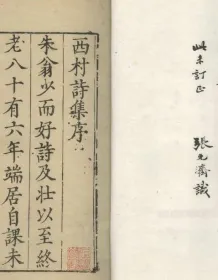 此未訂正
張元齋識
西村詩集序
朱翁少而好詩及壯以至終
老八十有六年端居自課未